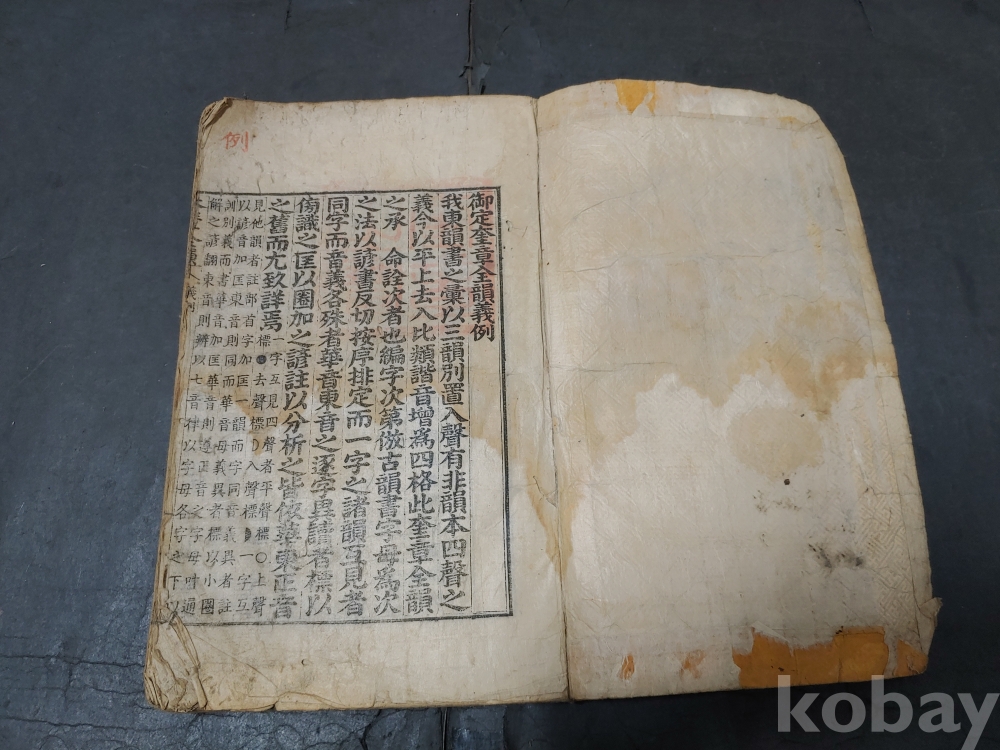 御定奎章全韻義例
我東韻書之彙以三韻別置入聲有非韻本四聲之
義今以平上去入比類諧音增爲四格此奎章全韻
之承 命詮次者也編字次第倣古韻書字母爲次
之法以諺書反切按序排定而一字之諸韻互見者
同字而音義各殊者華音東音之逐字再讀者標以
傍識之匡以圈加之諺註以分析之皆倣華東正音
之舊而尤致詳焉
一字互見四聲者平聲標○上聲
標 去聲標 入聲標 一字互
見他韻者註部首字加匡一韻而字同音義異者註
以諺音加匡東音則同而華音母義異者標以小圈
訓別義而書華音加匡華音則遵正音文字母叶通
解之諺翻東音則辨以七音律以字母各字之下以
例
kobay